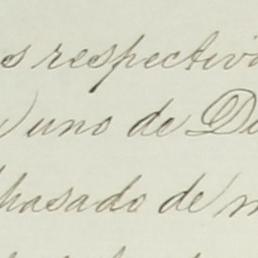 s respectiv
uno de D
pasado de